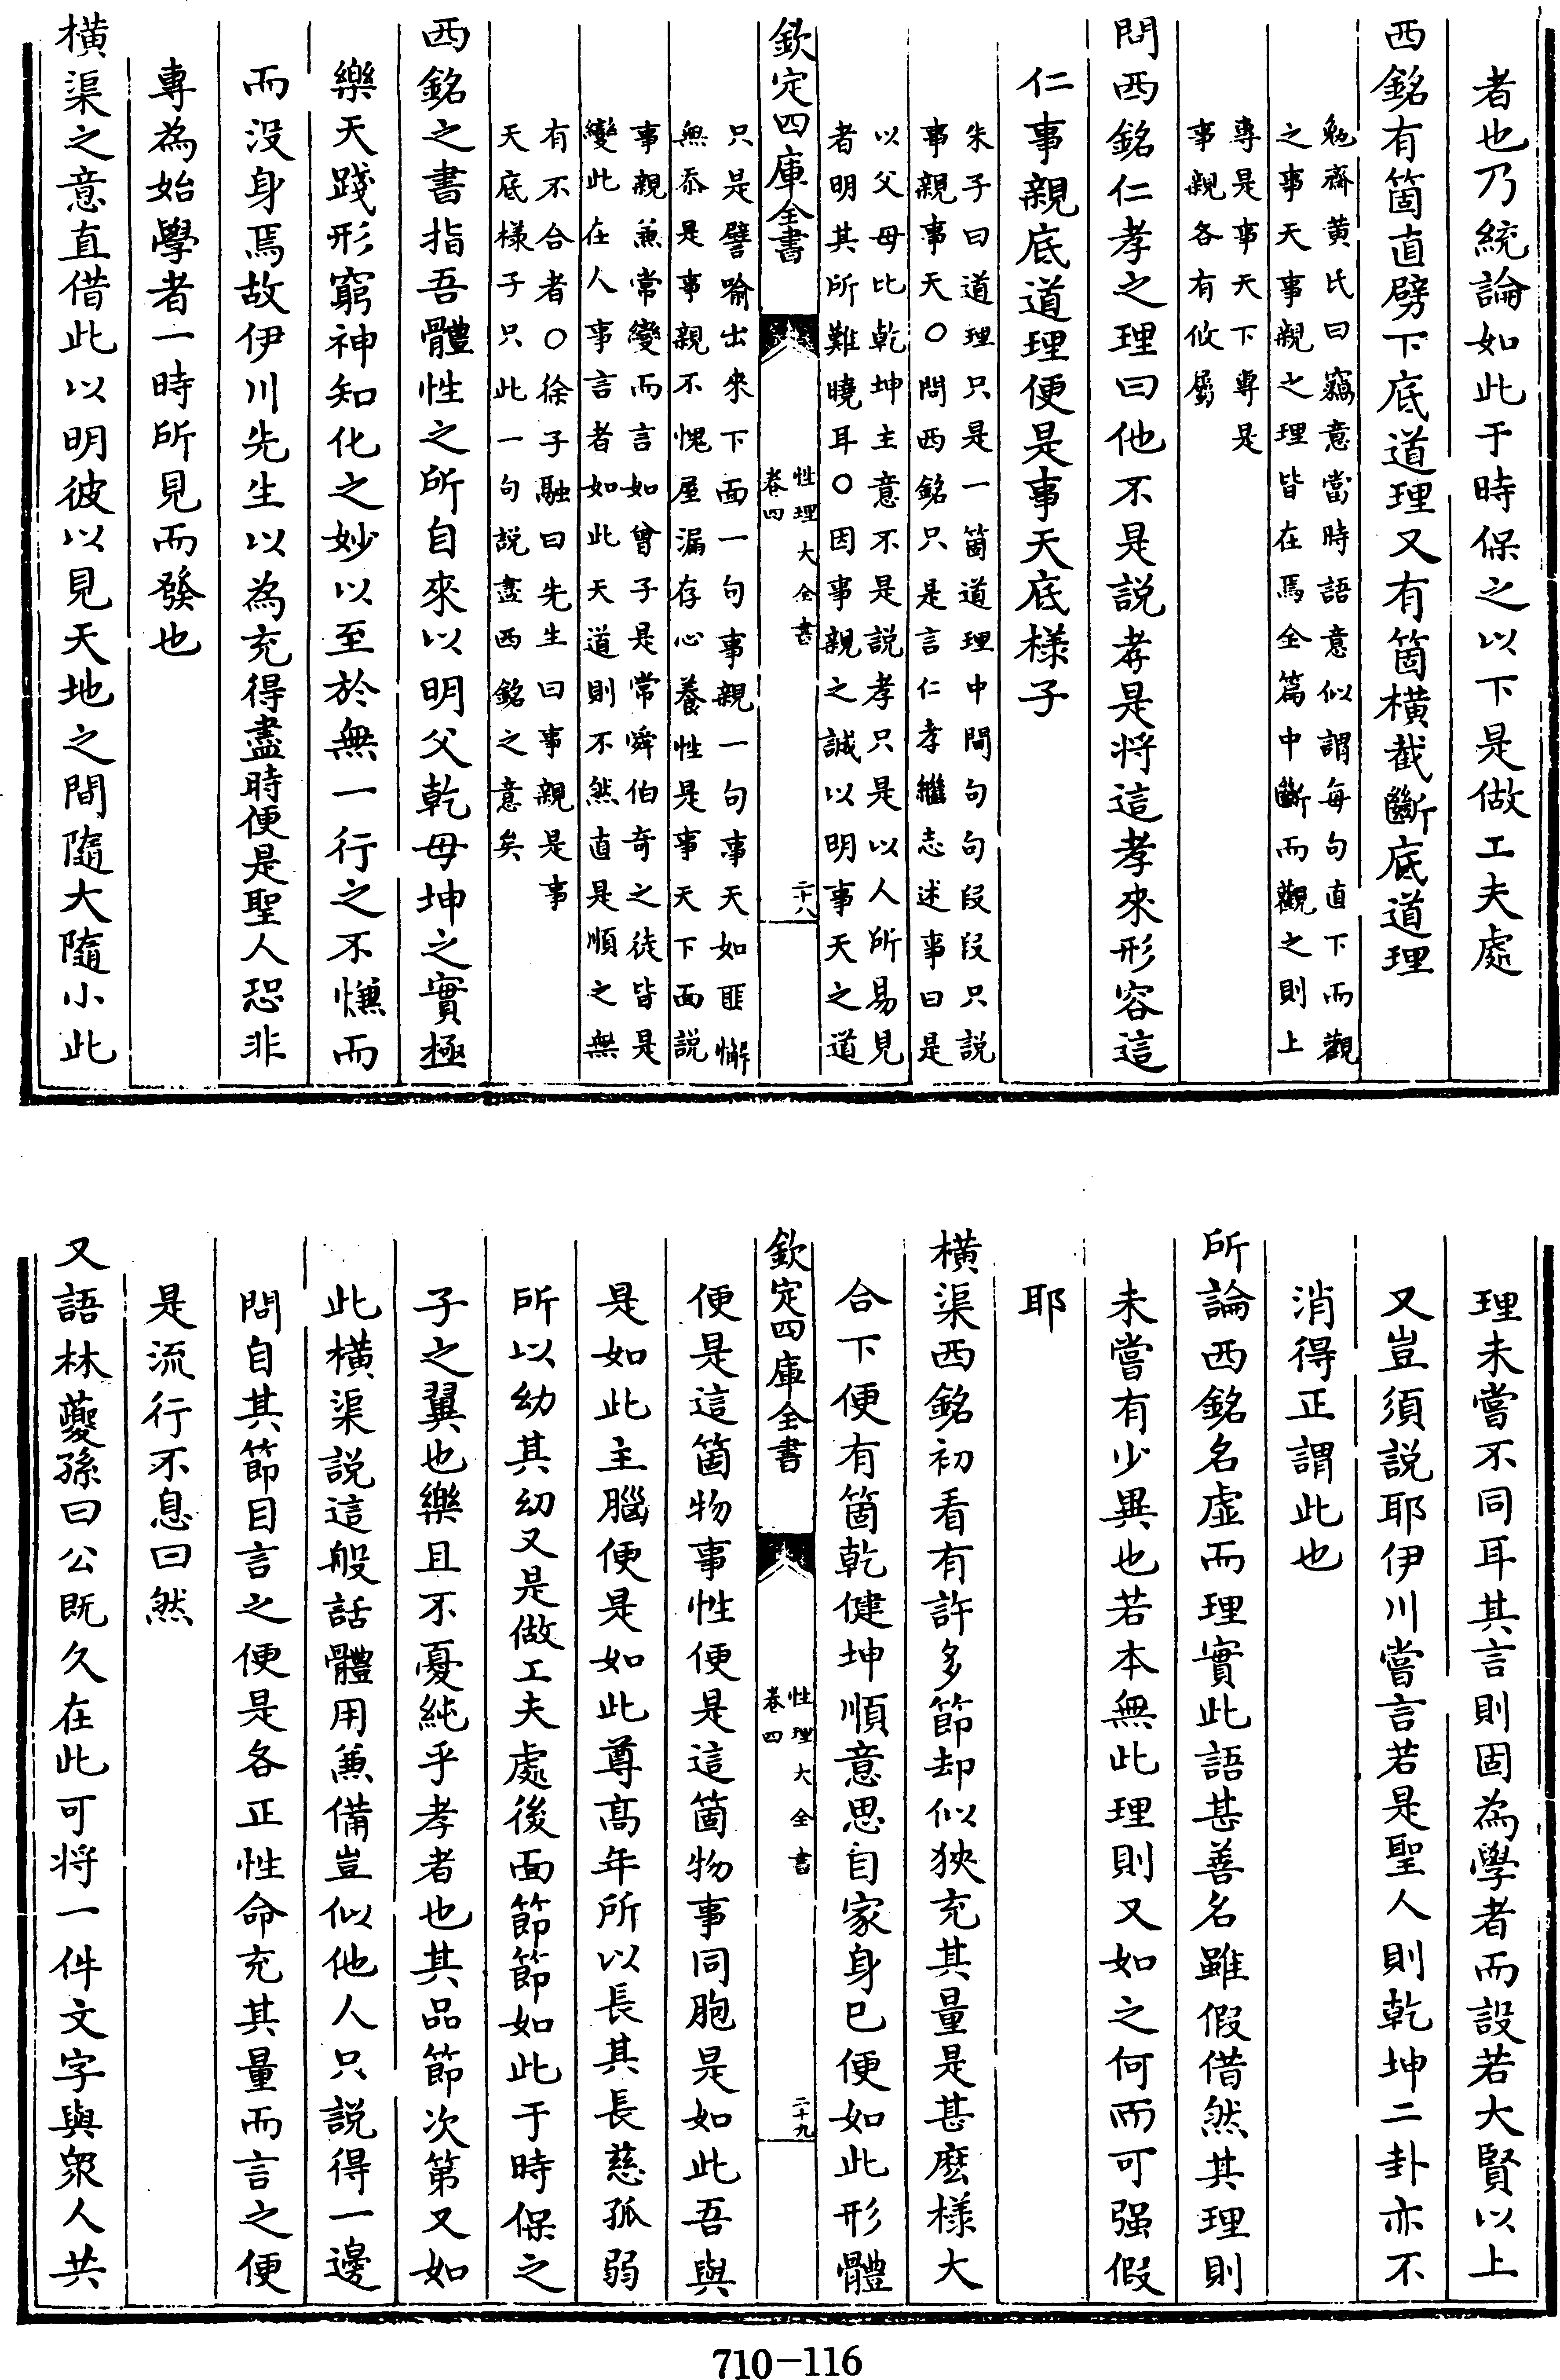 者也乃統論如此于時保之以下是做工夫處
西銘有箇直劈下底道理又有箇橫截斷底道理
勉齋黄氏曰竊意當時語意似謂每句直下而觀
之事天事親之理皆在焉全篇中斷而觀之則上
專是事天下專是
事親各有攸屬
問西銘仁孝之理曰他不是説孝是將這孝來形容這
仁事親底道理便是事天底様子
朱子曰道理只是一箇道理中間句句段段只説
事親事天○問西銘只是言仁孝繼志述事曰是
以父母比乾坤主意不是説孝只是以人所易見
者明其所難曉耳○因事親之誠以明事天之道
欽定四庫全書
性理大全書
卷四
二十八
只是譬喻出來下面一句事親一句事天如匪懈
無忝是事親不愧屋漏存心養性是事天下面説
事親兼常變而言如曾子是常舜伯奇之徒皆是
變此在人事言者如此天道則不然直是順之無
有不合者○徐子融曰先生曰事親是事
天底様子只此一句説盡西銘之意矣
西銘之書指吾體性之所自來以明父乾母坤之實極
樂天踐形窮神知化之妙以至於無一行之不慊而
而没身焉故伊川先生以為充得盡時便是聖人恐非
專為始學者一時所見而發也
橫渠之意直借此以明彼以見天地之間隨大隨小此
理未嘗不同耳其言則固為學者而設若大賢以上
又豈須説耶伊川嘗言若是聖人則乾坤二卦亦不
消得正謂此也
所論西銘名虚而理實此語甚善名雖假借然其理則
未嘗有少異也若本無此理則又如之何而可强假
耶
橫渠西銘初看有許多節却似狹充其量是甚麽様大
合下便有箇乾健坤順意思自家身已便如此形體
欽定四庫全書
性理大全書
卷四
二十九
便是這箇物事性便是這箇物事同胞是如此吾與
是如此主腦便是如此尊髙年所以長其長慈孤弱
所以幼其幼又是做工夫處後面節節如此于時保之
子之翼也樂且不憂純乎孝者也其品節次第又如
此橫渠説這般話體用兼備豈似他人只説得一邊
問自其節目言之便是各正性命充其量而言之便
是流行不息曰然
又語林夔孫曰公既久在此可将一件文字與衆人共
710-116